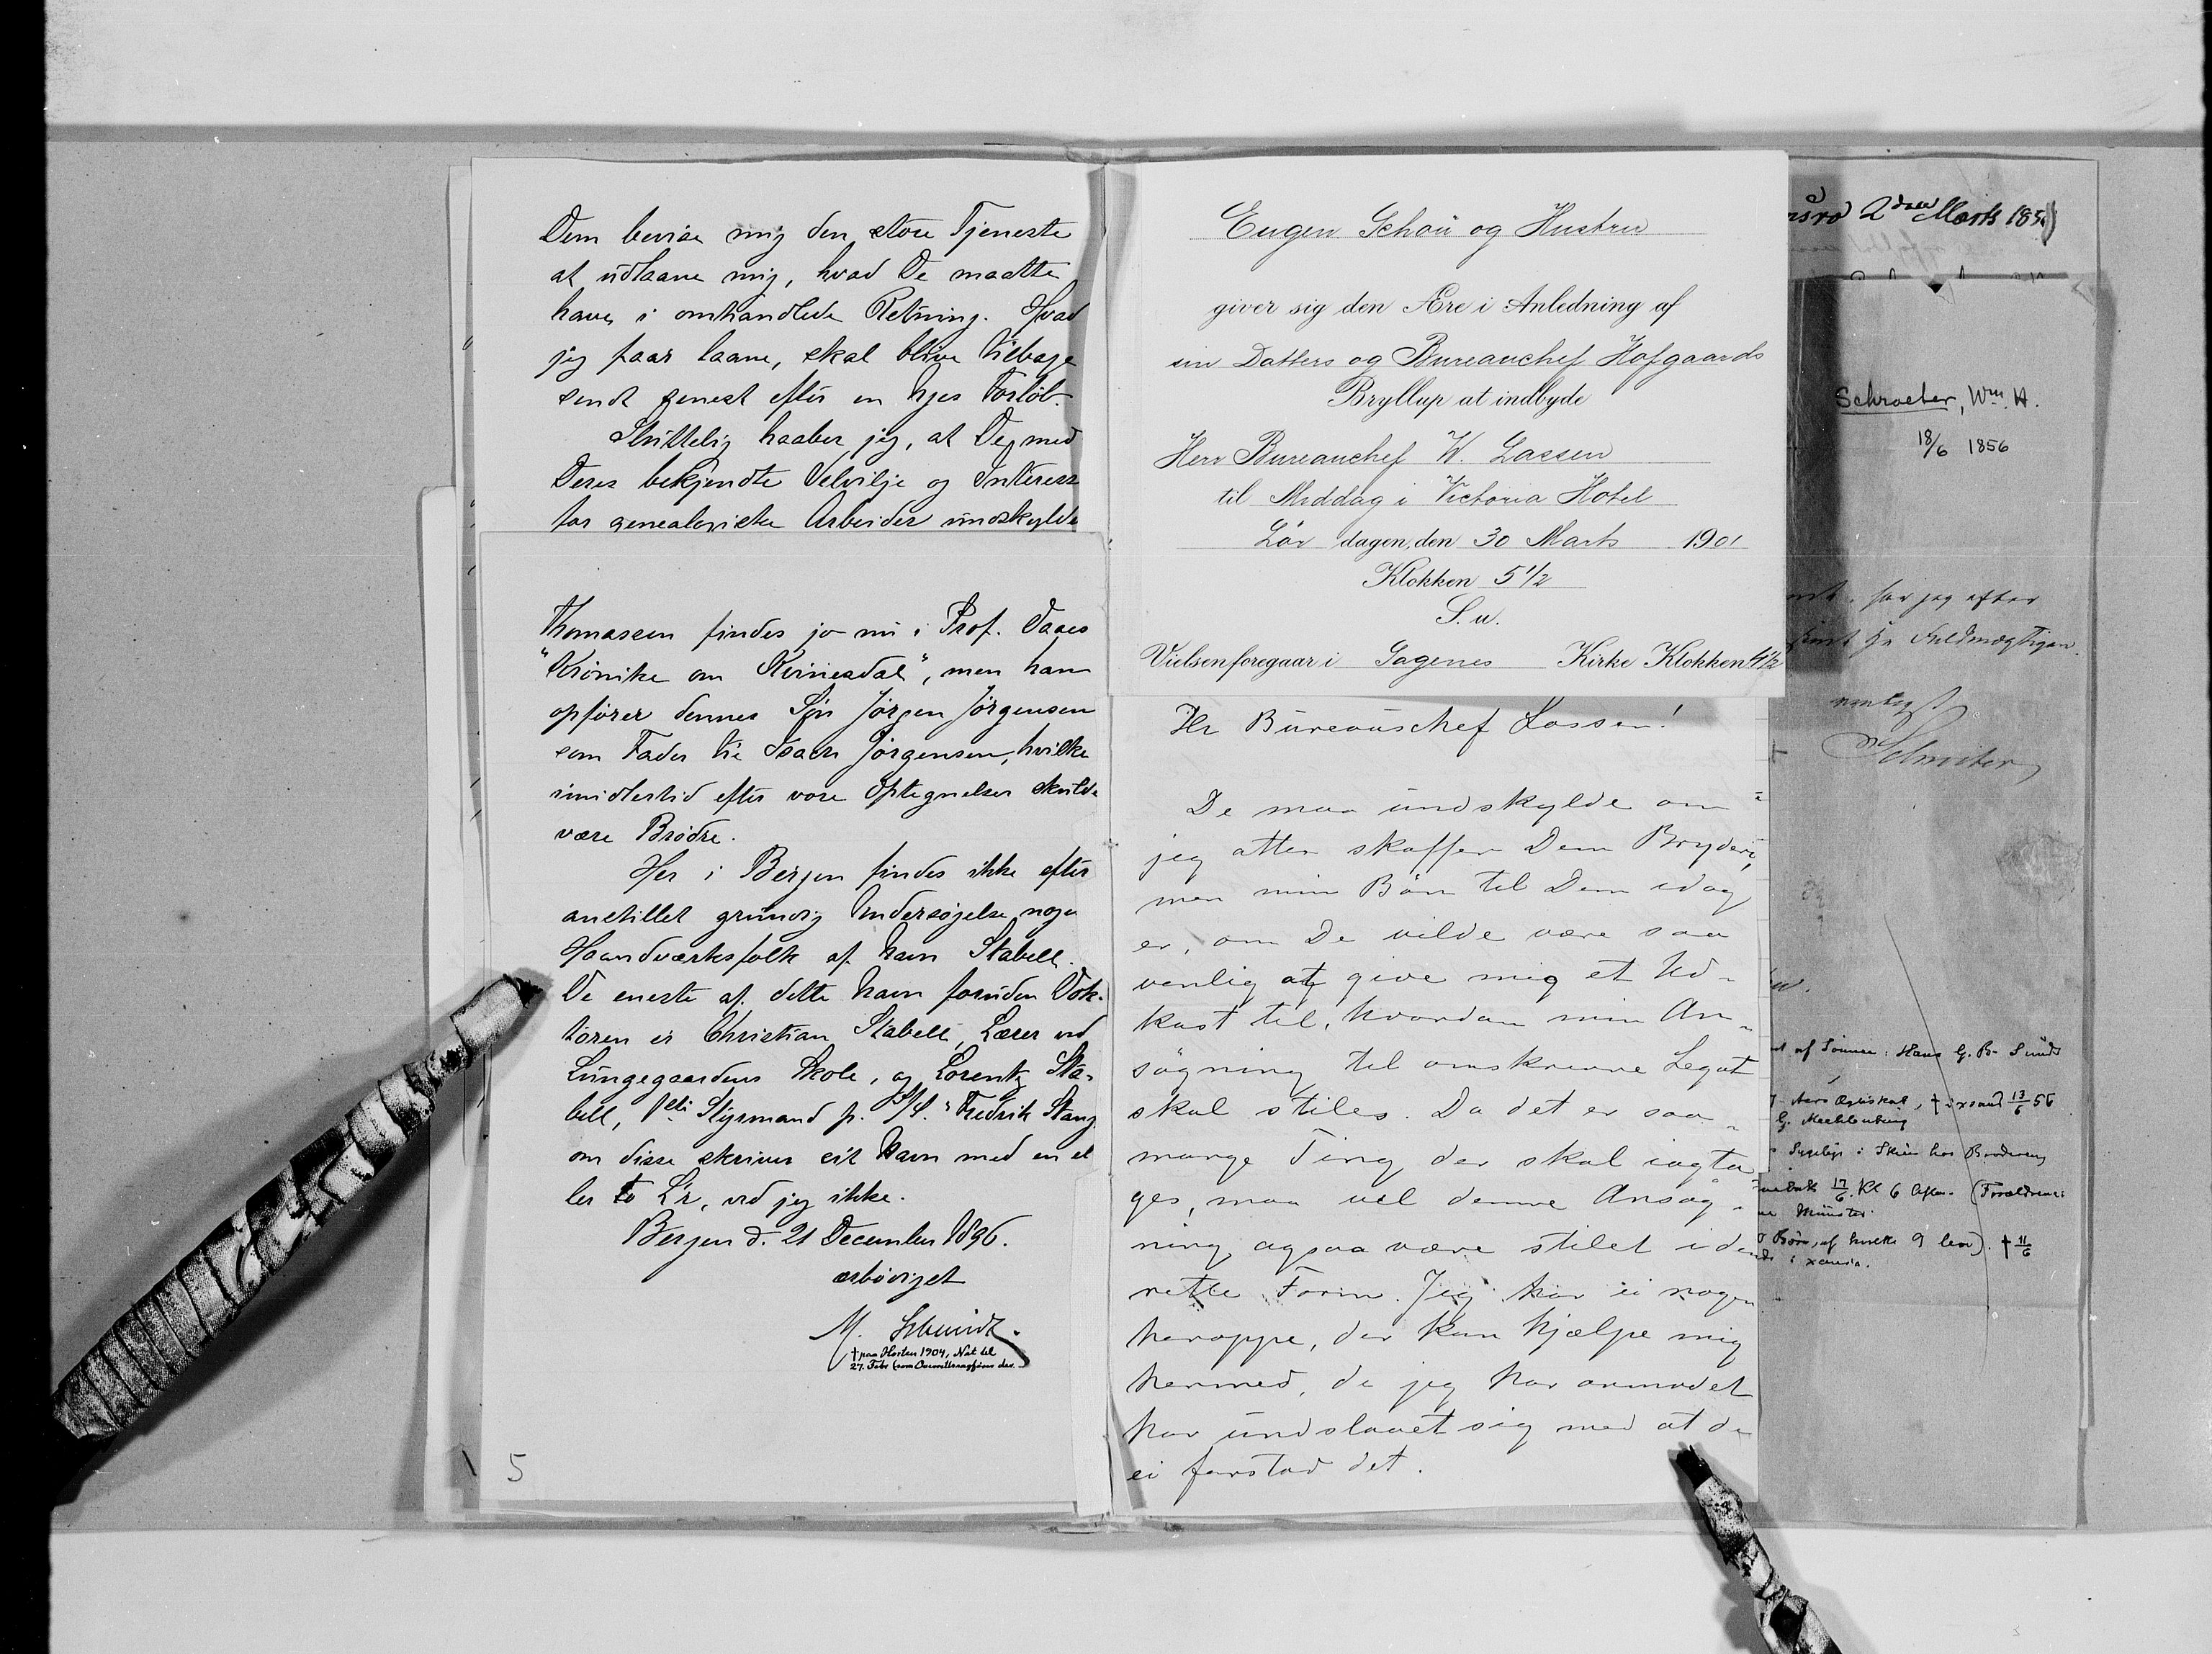 Dem bevise mig den store Tjeneste
at udlaane mig, hvad De maatte
have i omhandlede Retning. Hvad
jeg faar laane, skal blive tilbage
sendt senest efter en Uges Forløb.
Sluttelig haaber jeg, at De, med
Deres bekjendte Velvilje og Interesse
for genealogiske Arbeider undskylde
Thomassen findes jo nu i Prof. Daaes
"Krønike om Kvinesdal", men han
opfører dennes Søn Jørgen Jørgensen
som Fader til Isach Jørgensen, hvilke
imidlertid efter vore Optegnelser skulde
være Brødre.
Her i Bergen findes ikke efter
anstillet grundig Undersøgelse noge
Haandværksfolk af Navn Stabell.
De eneste af dette Navn foruden Dok-
toren er Christian Stabell, Lærer ved
Lungegaardens Skole, og Lorentz Sta-
bell, Styrmand p. S/S. "Fredrik Stang
om disse skriver sit Navn med en el
ler to L'r, ved jeg ikke.
Bergen d. 21 December 1896.
ærbødigst
M. Schmidt.
† paa Horten 1904, Nat til
27. Febr (som
5
Eugen Schou og Hustru
giver sig den Ære i Anledning af
sin Datters og Bureauchef Hofgaards
Bryllup at indbyde
Herr Bureauchef W. Lassen
til Middag i Victoria Hotel
Lør dagen, den 30 Marts 1901
Klokken 5 1/2
S. u.
Vielsen foregaar i Gagenes Kirke Klokken 4 1/2
Hr Bureauschef Lassen!
De maa undskylde om
jeg atter skaffer Dem Bryderi,
men min Bøn til Dem idag
er, om De vilde være saa
venlig at give mig et Ud-
kast til, hvordan min An-
søgning til omskrevne Legat
skal stiles. Da det er saa
mange Ting, der skal iagtta
ges, maa vel denne Ansøg-
ning ogsaa være stilet i den
rette Form. Jeg har ei nogen
heroppe, der kan hjælpe mig
hermed, de jeg har anmodet
har undslaaet sig med at de
ei forstod det.
2den Marts 185
Schroeter, Wm. H.
18/6 1856
har jeg efter
Fuldmægtigen.
Schrøter
af Sønnen: Hans G. B. Sundt
† i xania 13/6 56
G. Mechlenburg
Sygeleje i Skien hos Broderen
17/6. Kl 6 Aften. (Forældrene:
Münster.
Børn, af hvilke 9 lever). † 11/6
i xania.